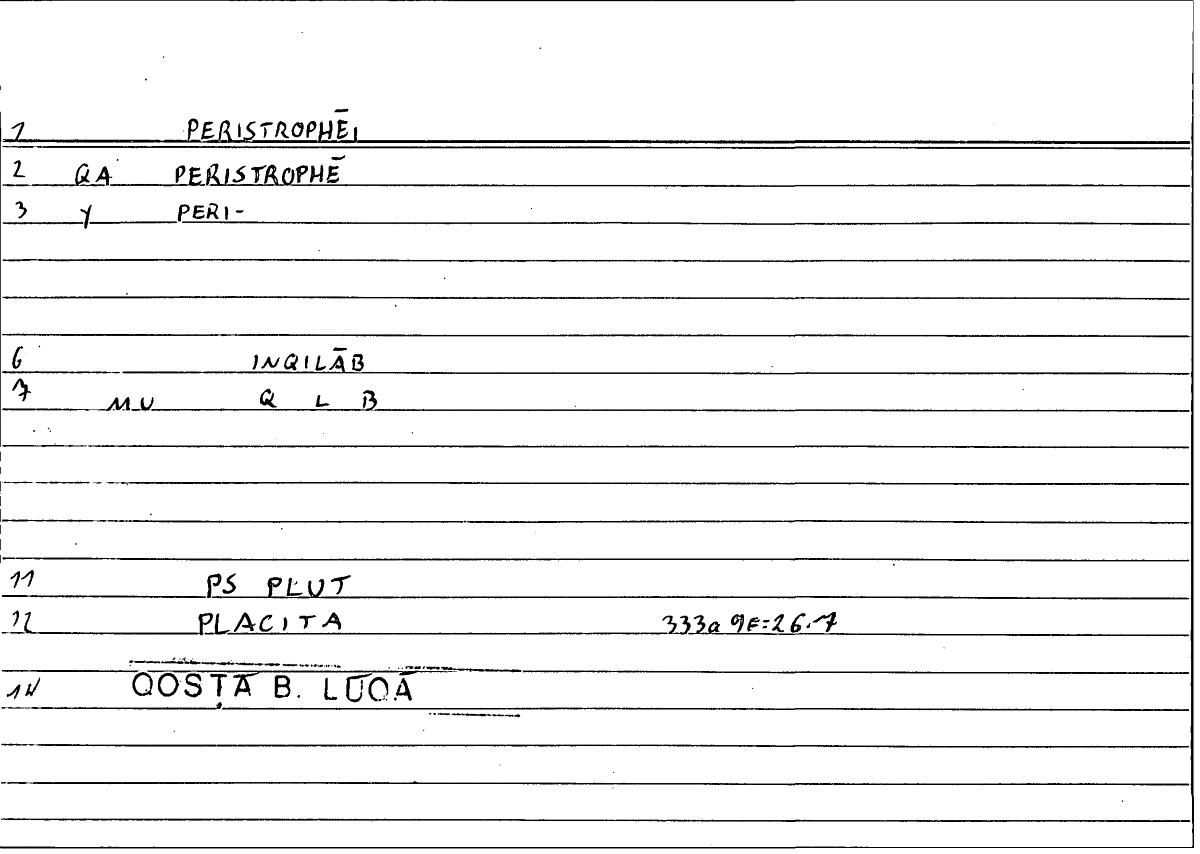 1 PERISTROPHĒI
2 QA PERISTROPHĒ
3 Y PERI-
6 INQILĀB
7 MU Q L B
11 PS PLUT
12 PLACITA 333a9E=26.7
14 QOSṬĀ B. LŪQĀ